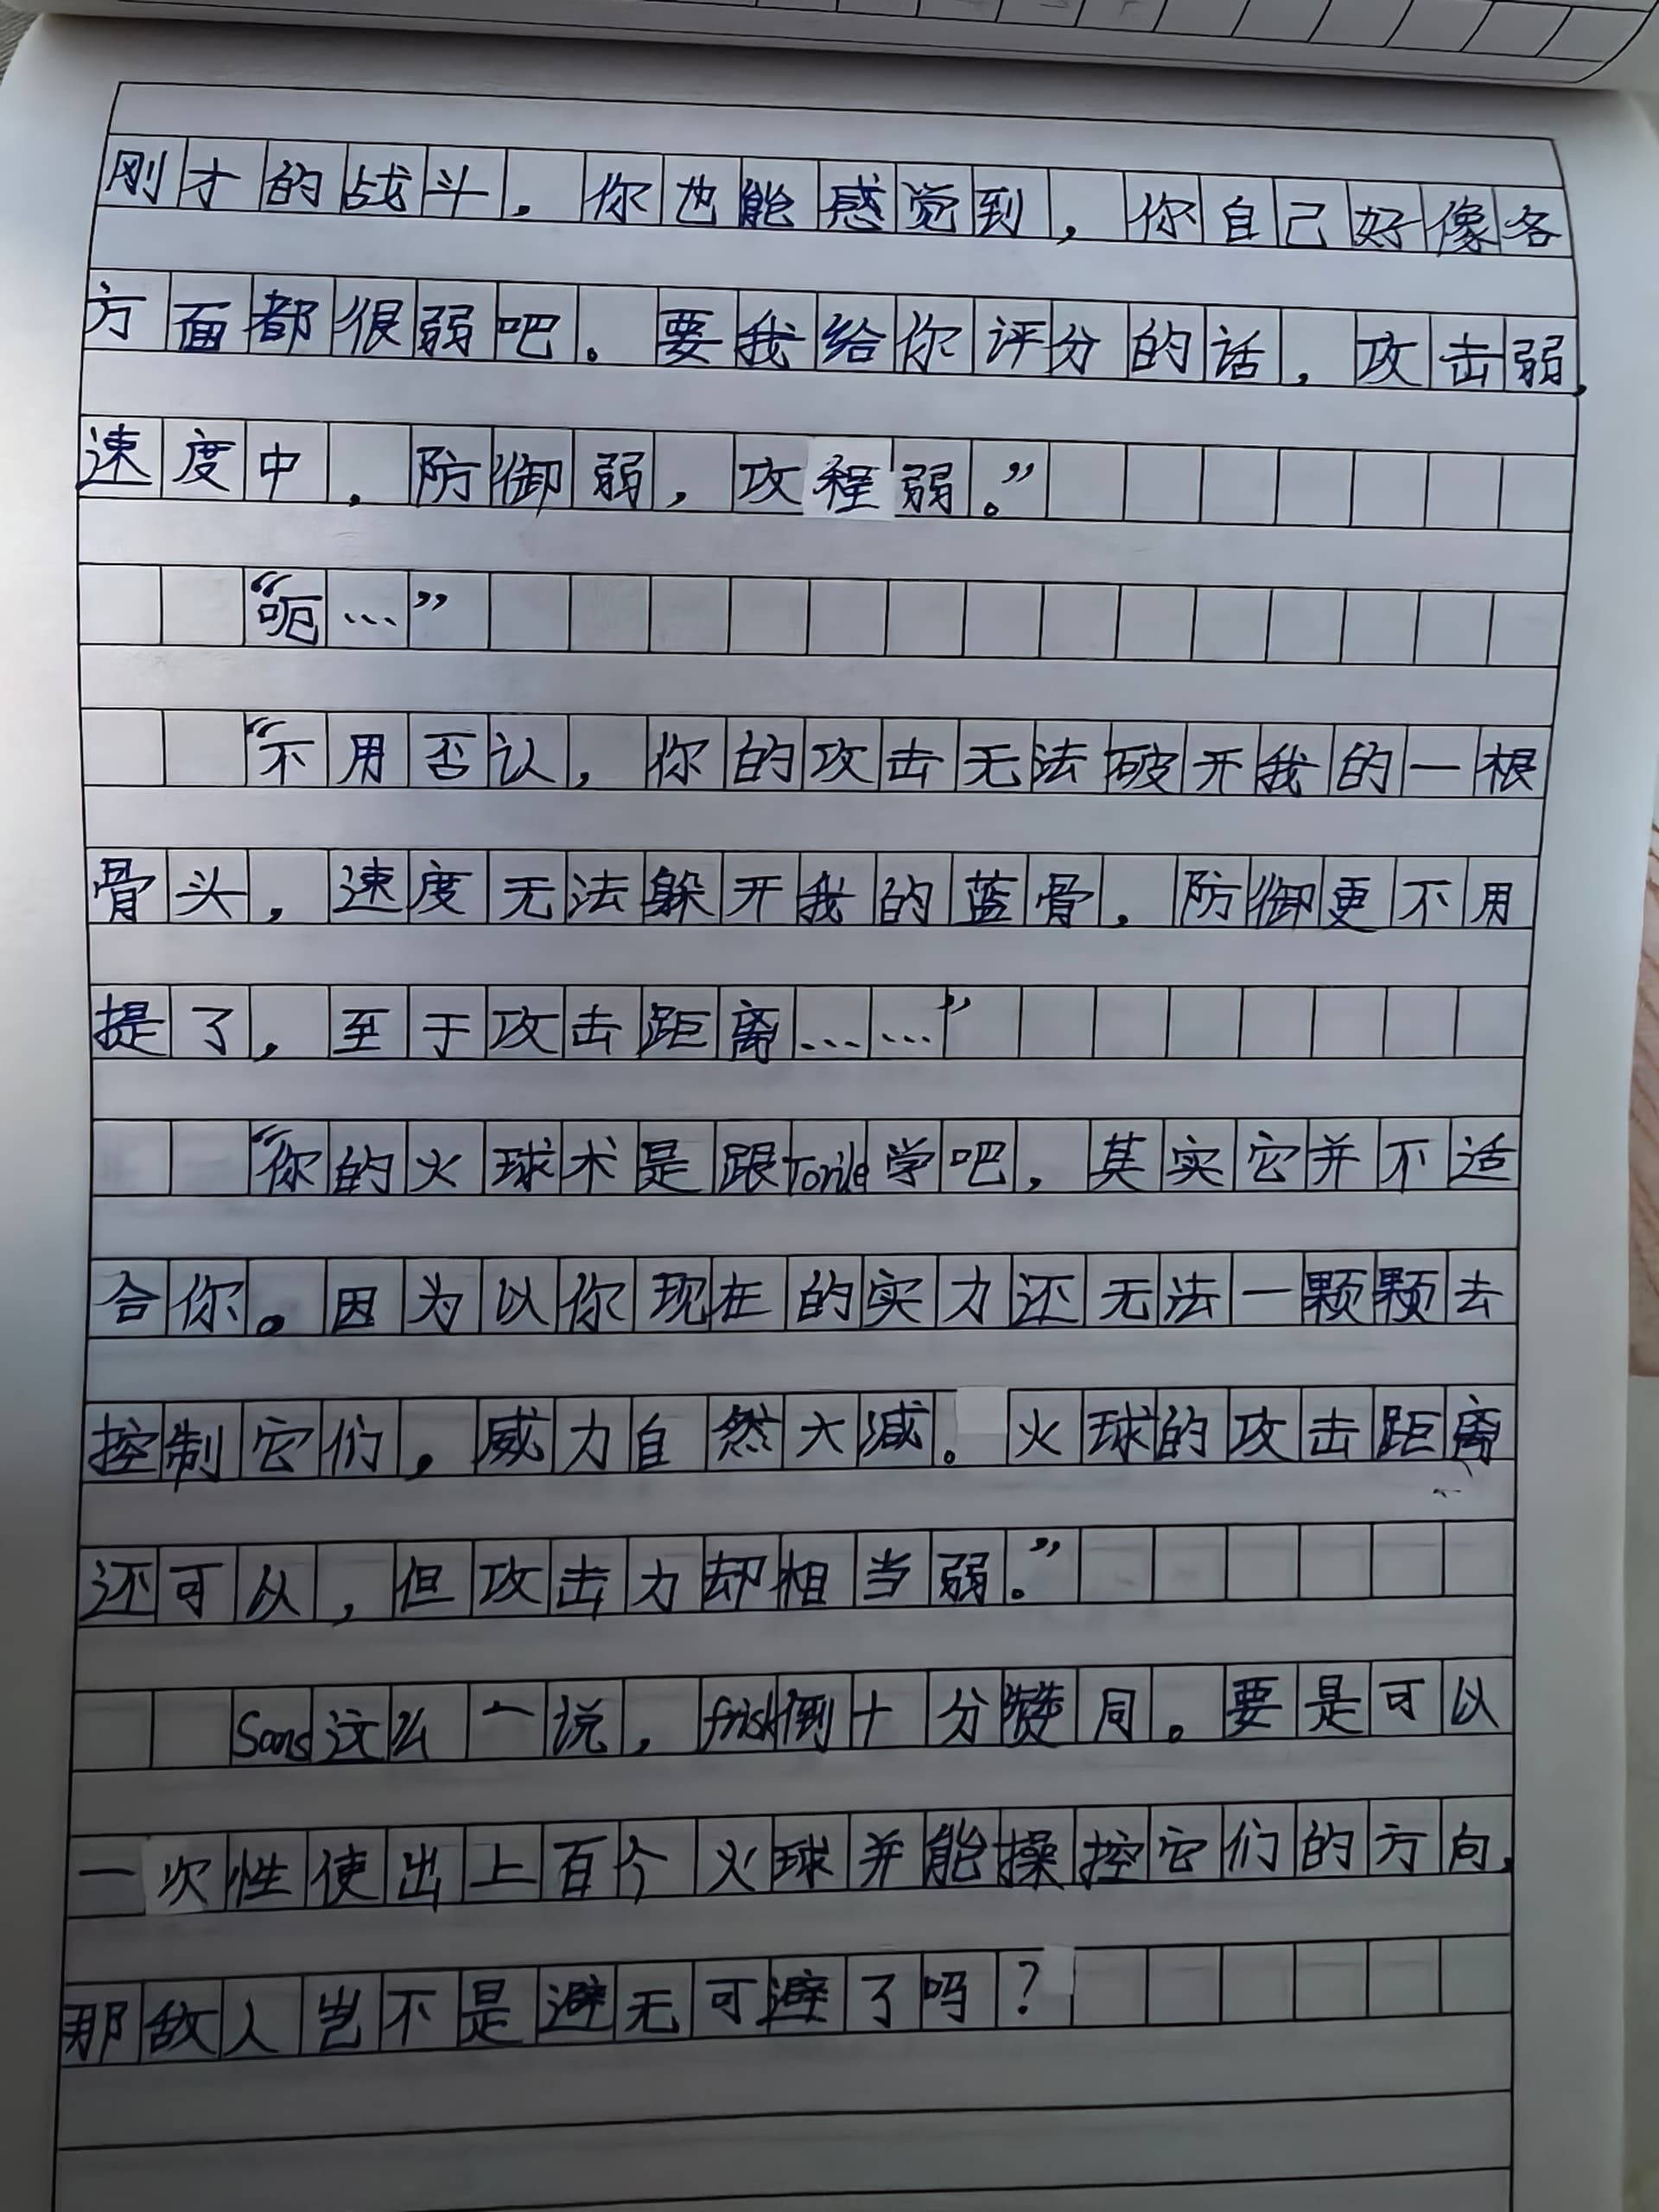 刚才的战斗，你也能感觉到，你自己好像各
方面都很弱吧。要我给你评分的话，攻击弱，
速度中，防御弱，攻程弱。”
“呃…”
“不用否认，你的攻击无法破开我的一根
骨头，速度无法躲开我的蓝骨，防御更不用
提了，至于攻击距离……”
“你的火球术是跟Toriel学吧，其实它并不适
合你。因为以你现在的实力还无法一颗颗去
控制它们，威力自然大减。火球的攻击距离
还可以，但攻击力却相当弱。”
Sans这么一说，frisk倒十分赞同。要是可以
一次性使出上百个火球并能操控它们的方向，
那敌人岂不是避无可避了吗？